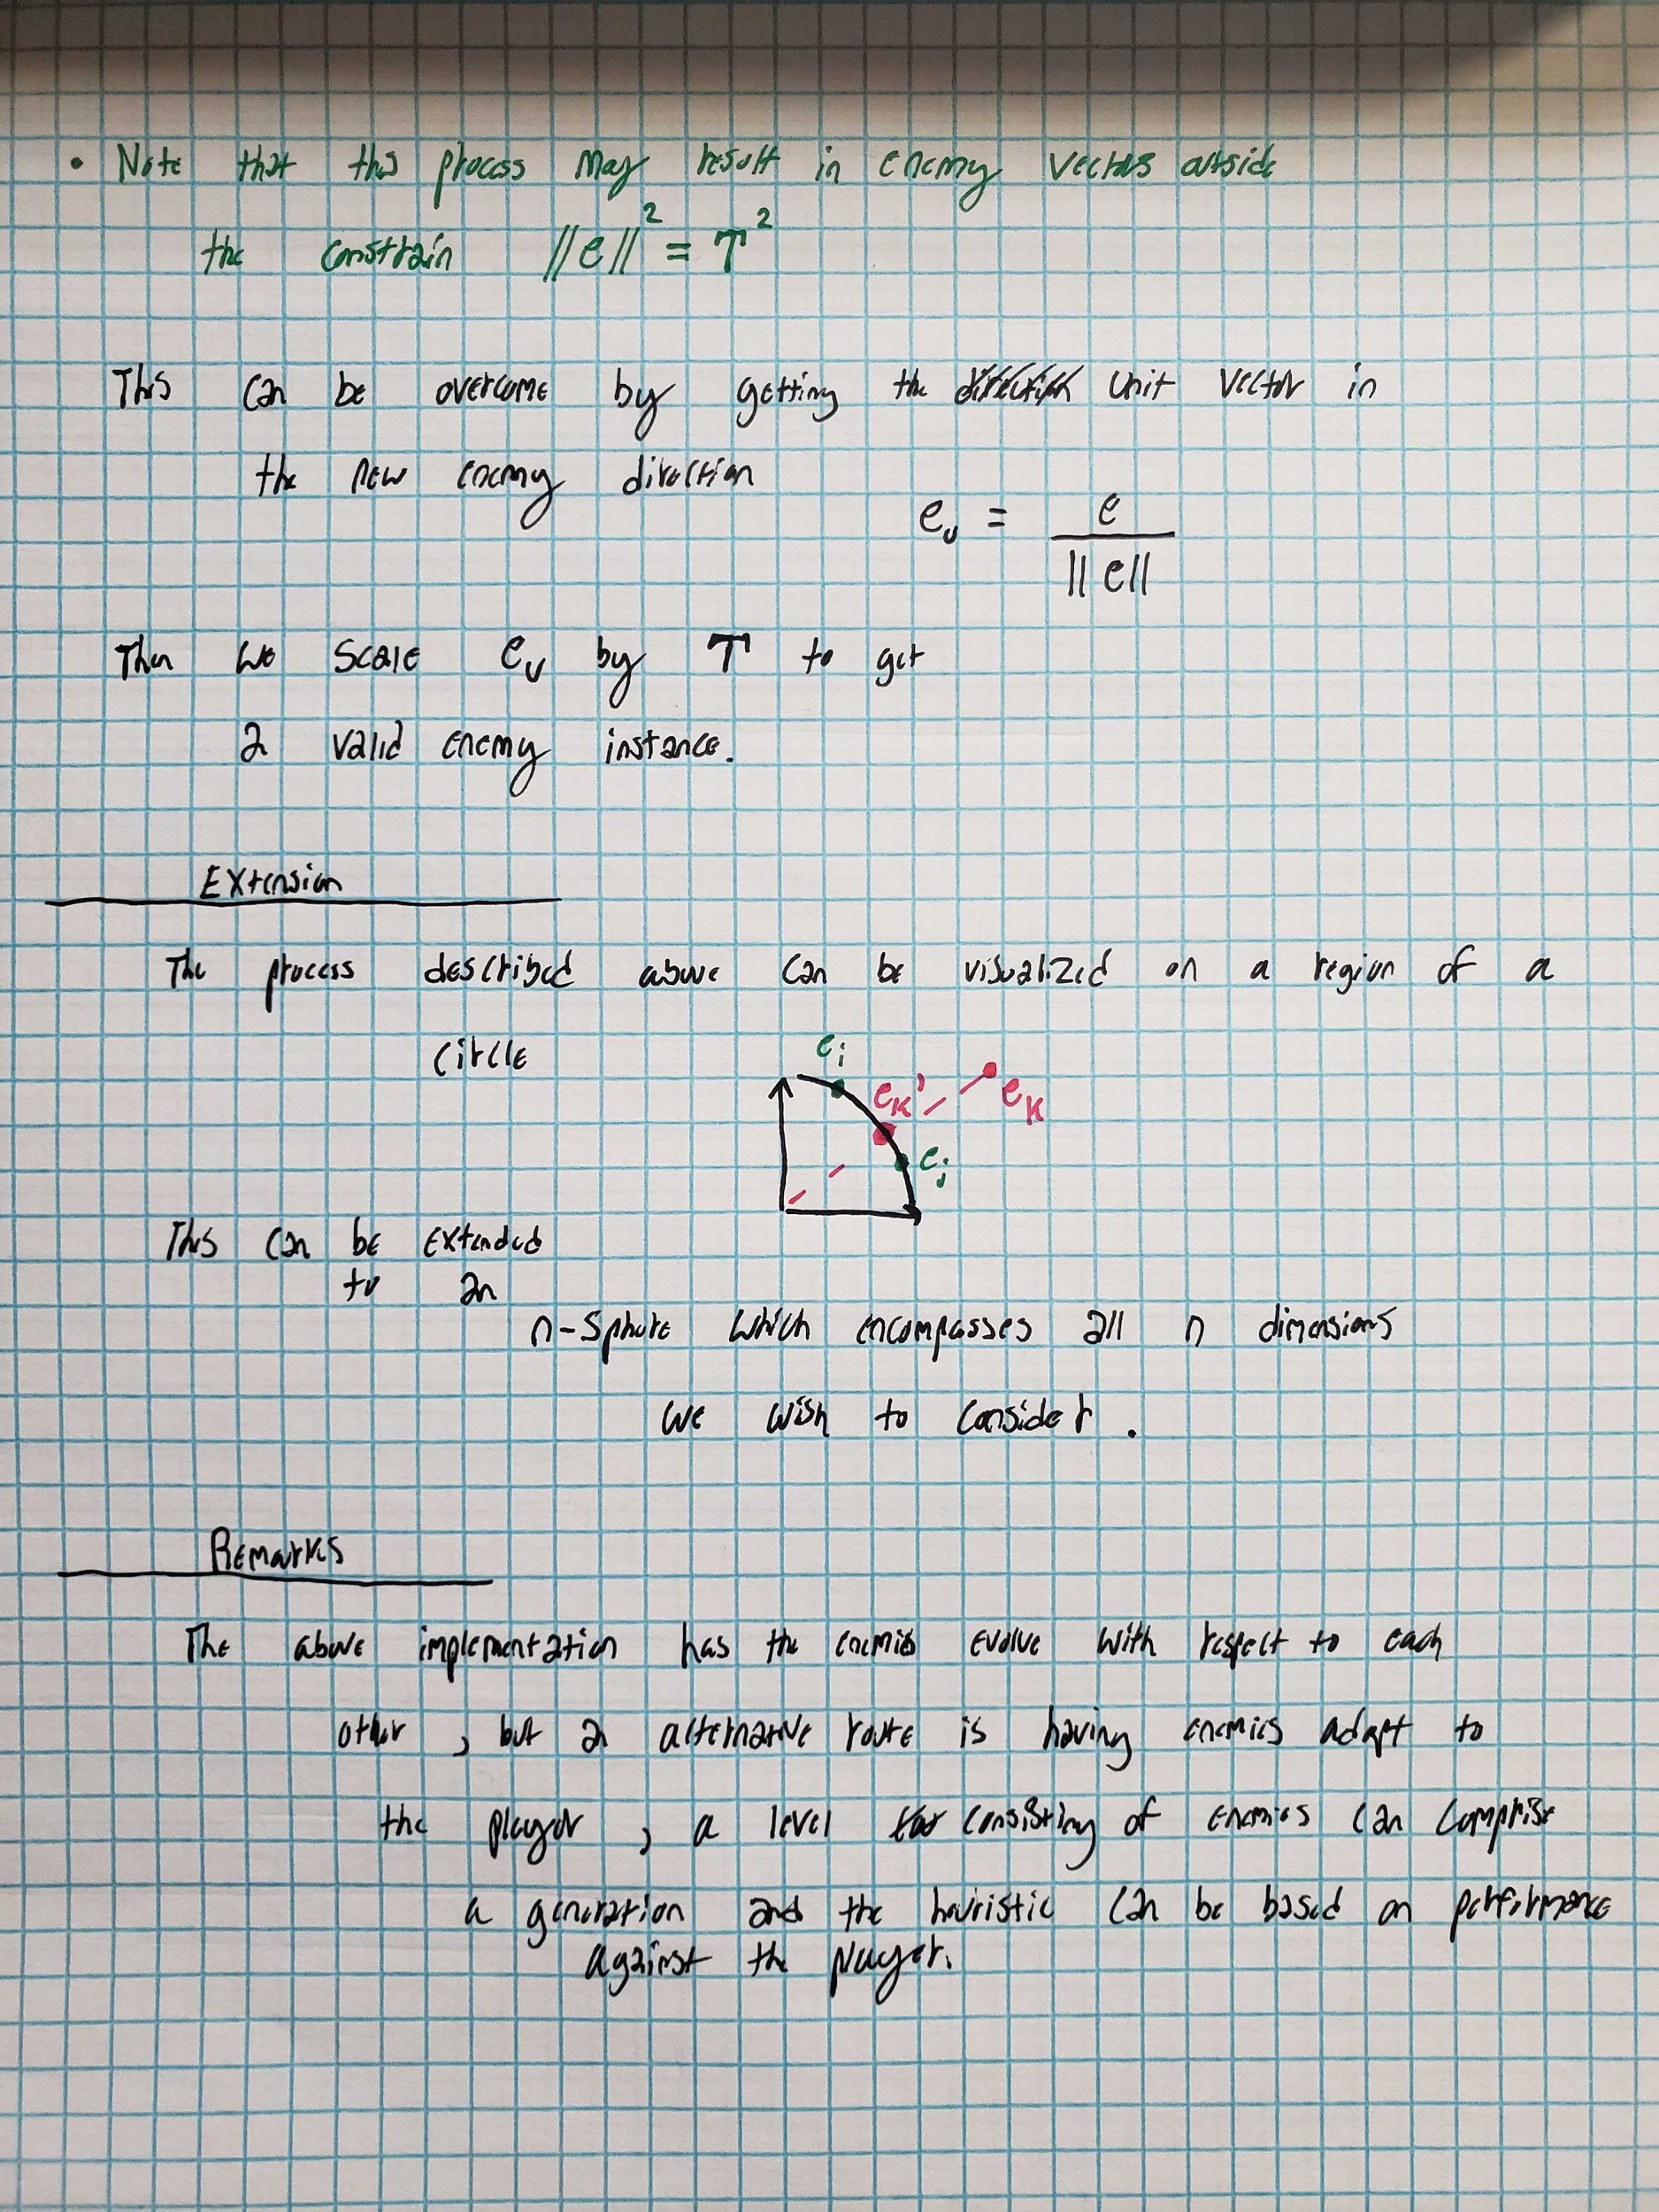 • Note that this process may result in enemy vectors outside
the constrain ||e||² = T²
This can be overcome by getting the unit vector in
the new enemy direction
e_u = e / ||e||
Then we scale e_u by T to get
a valid enemy instance.
Extension
The process described above can be visualized on a region of a
circle
e_i
e_k' e_k
e_j
This can be extended
to an
n-sphere which encompasses all n dimensions
we wish to consider.
Remarks
The above implementation has the enemies evolve with respect to each
other, but a alternative route is having enemies adapt to
the player, a level consisting of enemies can comprise
a generation and the heuristic can be based on performance
against the player.